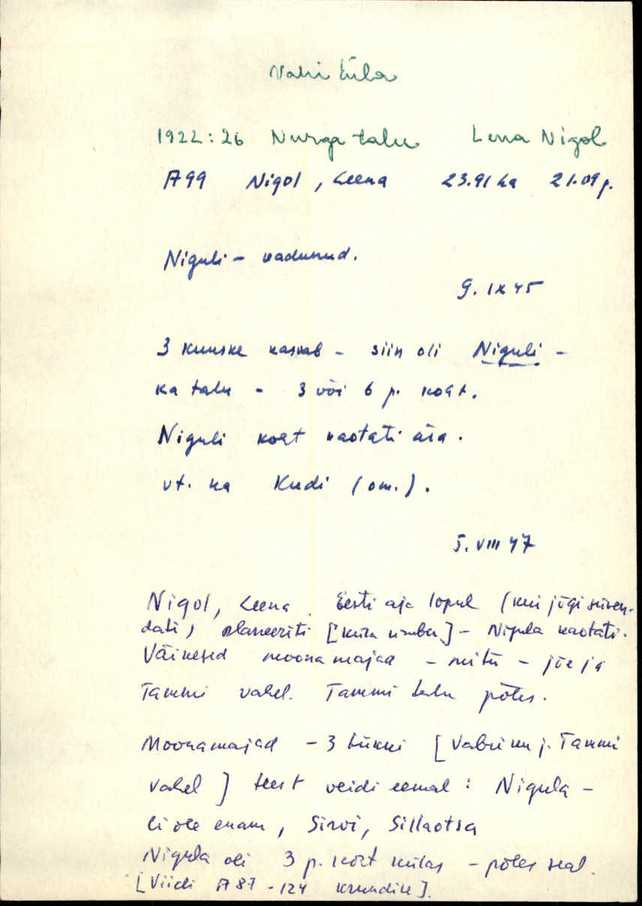 Vahi küla
1922:26 Nurga talu Lena Nigol
A99 Nigol, Leena 23.91 ha 21.09 p.
Niguli – kadunud.
9. IX 45
3 kuuske kasvab – siin oli Niguli –
ka talu – 3 või 6 p. koht.
Niguli koht kaotati ära.
vt. ka Kudi (om.).
5. VIII 47
Nigol, Leena. Eesti aja lopul (kui jõgi süven-
dati, planeeriti [küla umber] – Nigula kaotati.
Väikesed moonamajad – mitu – jõe ja
Tammi vahel. Tammi talu põles.
Moonamajad – 3 tükki [Tammi
vahel] teest veidi eemal: Nigula –
ei ole enam, Sirvi, Sillaotsa
Nigula oli 3 p. koht külas – põles seal.
[Viidi A87 – 124 krundile].